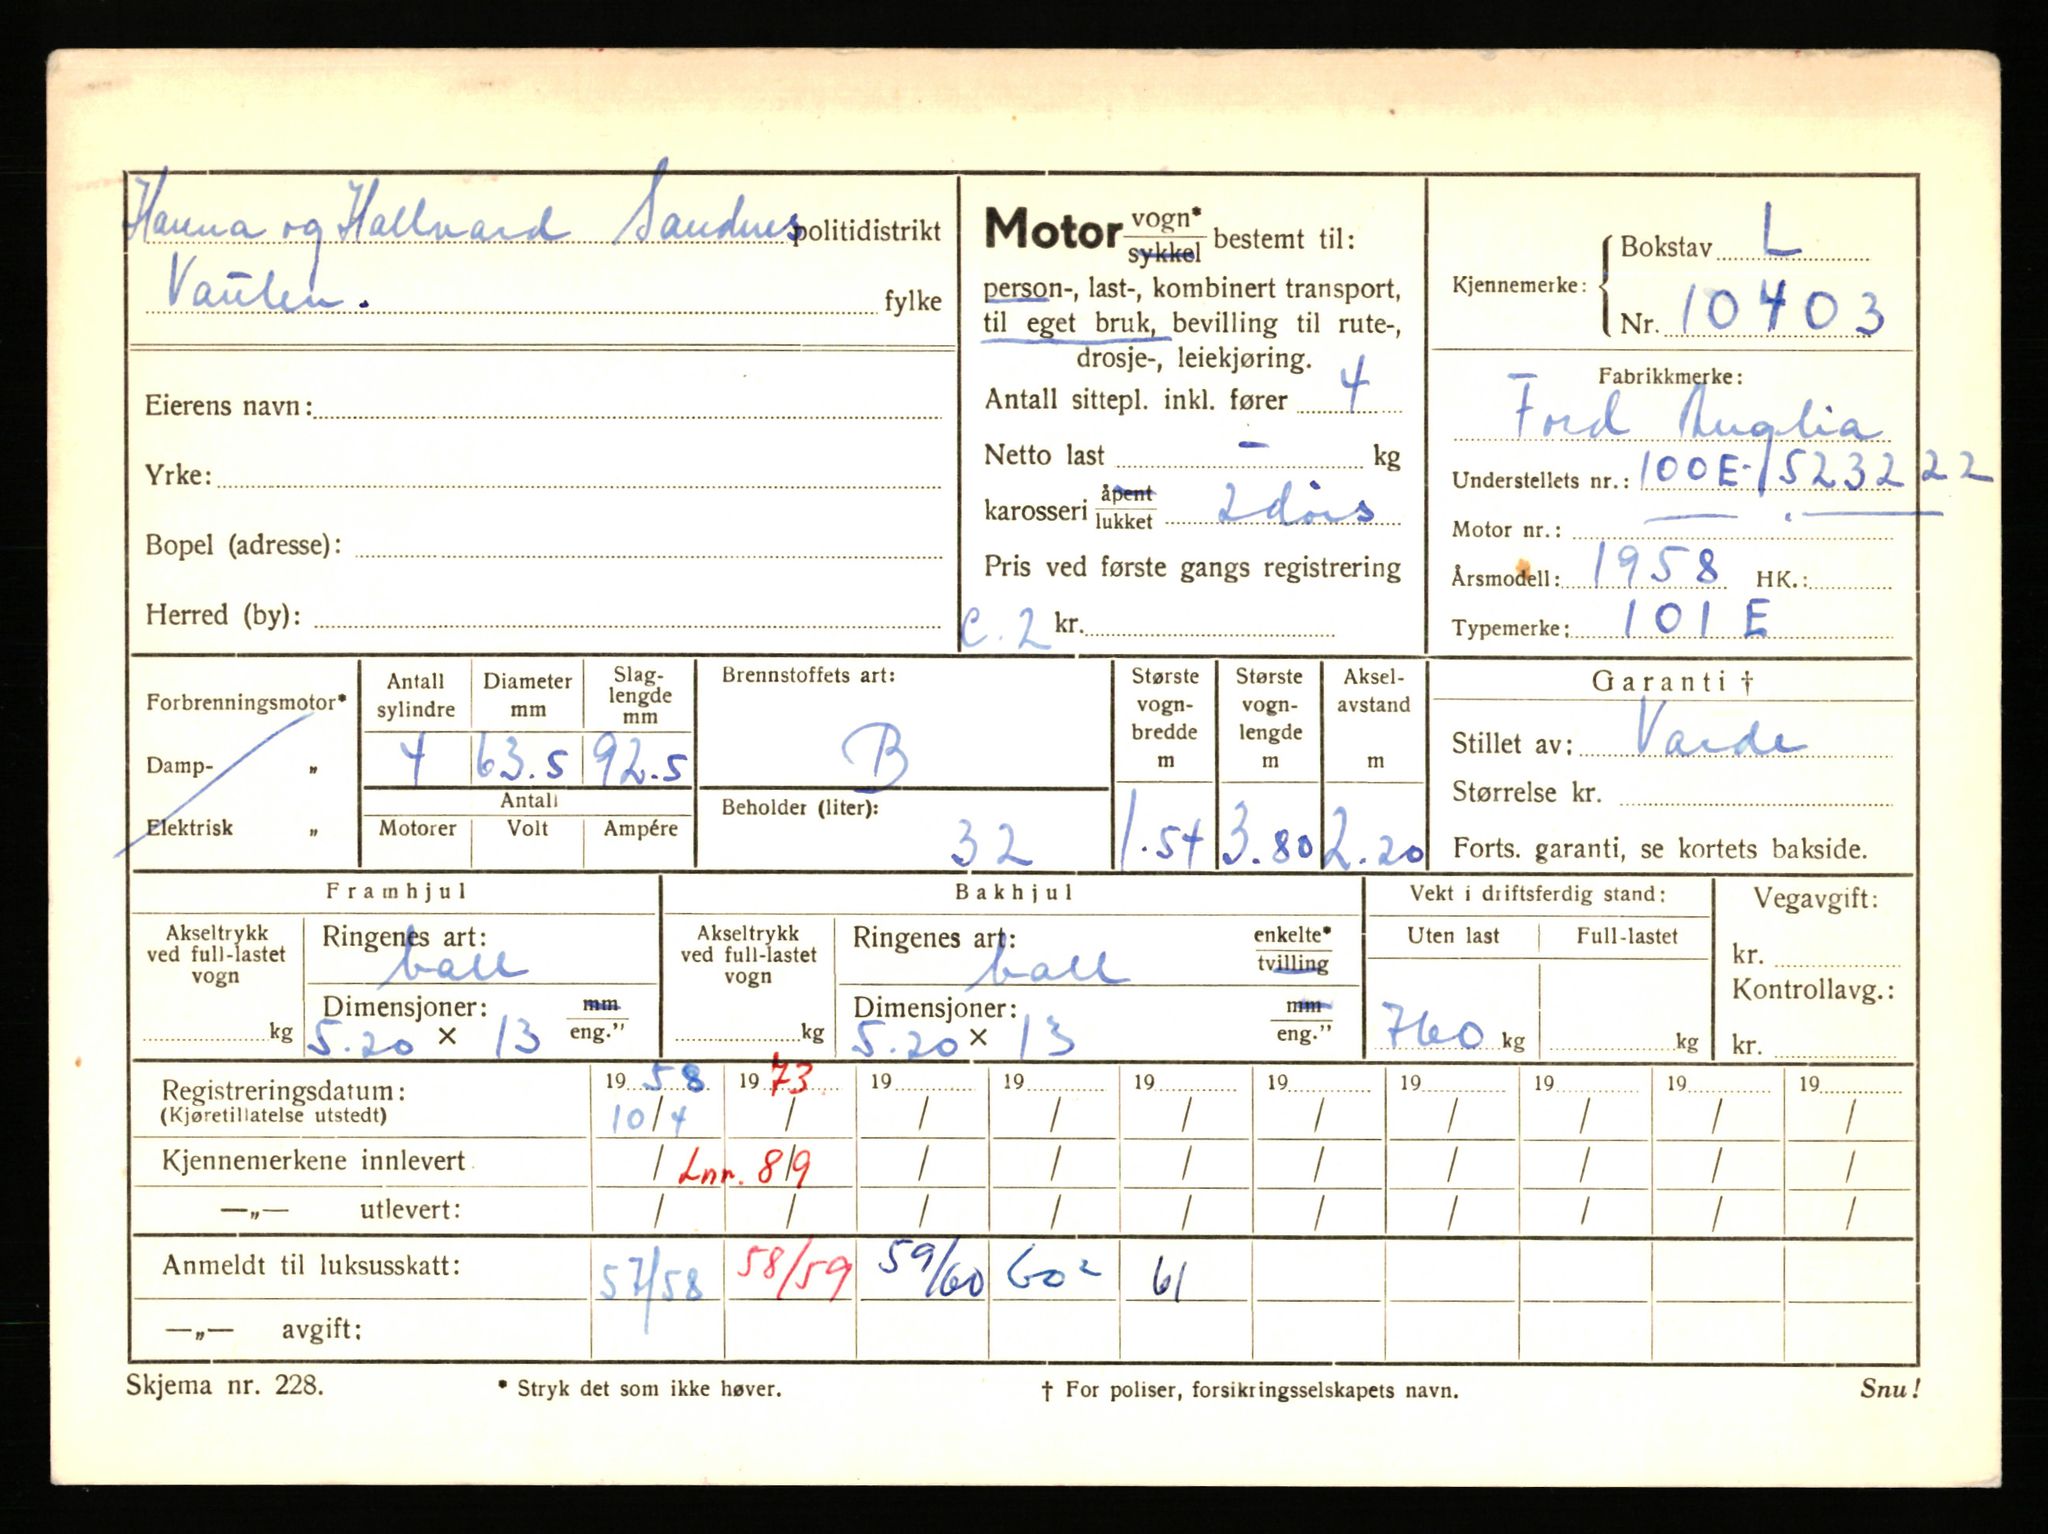 Hanna og Hallvard Sandnes politidistrikt
Vaulen. fylke
Eierens navn:
Yrke:
Bopel (adresse):
Herred (by):
Motor vogn* sykkel bestemt til:
person-, last-, kombinert transport,
til eget bruk, bevilling til rute-,
drosje-, leiekjøring.
Antall sittepl. inkl. fører 4
Netto last - kg
karosseri åpent lukket 2 dørs
Pris ved første gangs registrering
C. 2 kr.
Kjennemerke: Bokstav L
Nr. 10403
Fabrikkmerke:
Ford Anglia
Understellets nr.: 100E-1523222
Motor nr.:
Årsmodell: 1958 HK.:
Typemerke: 101 E
Forbrenningsmotor*
Damp- „
Elektrisk „
Antall sylindre
4
Diameter mm
63.5
Slag-
lengde
mm
92.5
Antall
Motorer Volt Ampére
Brennstoffets art:
B
Beholder (liter):
32
Største
vogn-
bredde
m
1.54
Største
vogn-
lengde
m
3.80
Aksel-
avstand
m
2.20
Garanti †
Stillet av: Varde
Størrelse kr.
Forts. garanti, se kortets bakside.
Framhjul
Akseltrykk
ved full-lastet
vogn
kg
Ringenes art:
ball
Dimensjoner: mm
5.20 × 13 eng.”
Bakhjul
Akseltrykk
ved full-lastet
vogn
kg
Ringenes art: enkelte*
ball tvilling
Dimensjoner: mm
5.20 × 13 eng.”
Vekt i driftsferdig stand:
Uten last Full-lastet
760 kg kg
Vegavgift:
kr.
Kontrollavg.:
kr.
Registreringsdatum: 19 58 19 73 19 19 19 19 19 19 19 19
(Kjøretillatelse utstedt) 10/4 / / / / / / / / /
Kjennemerkene innlevert / Lnr. 8/9 / / / / / / / /
—„— utlevert: / / / / / / / / / /
Anmeldt til luksusskatt: 57/58 58/59 59/60 60² 61
—„— avgift:
Skjema nr. 228. * Stryk det som ikke høver. † For poliser, forsikringsselskapets navn. Snu!